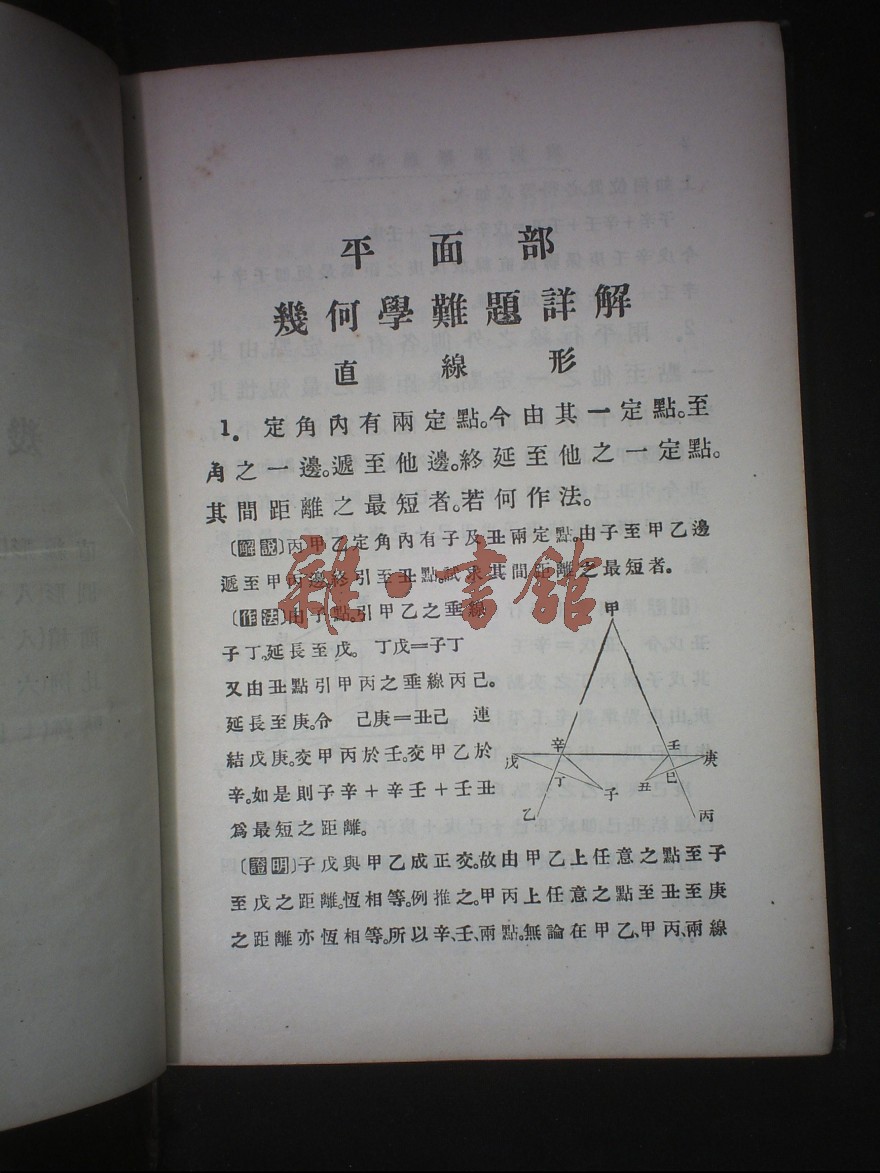 平面部
幾何學難題詳解
直線形
1。定角內有兩定點。今由其一定點。至
角之一邊。遞至他邊。終延至他之一定點。
其間距離之最短者。若何作法。
〔解說〕丙甲乙定角內有子及丑兩定點。由子至甲乙邊
遞至甲丙邊。終引至丑點。試求其間距離之最短者。
〔作法〕由子點。引甲乙之垂線
子丁。延長至戊。 丁戊=子丁
又由丑點引甲丙之垂線丙己。
延長至庚。令 己庚=丑己 連
結戊庚。交甲丙於壬。交甲乙於
辛。如是則子辛+辛壬+壬丑
爲最短之距離。
甲
戊
辛
壬
庚
丁
巳
子
丑
乙
丙
〔證明〕子戊與甲乙成正交。故由甲乙上任意之點至子
至戊之距離。恆相等。例推之。甲丙上任意之點至丑至庚
之距離亦恆相等。所以辛、壬、兩點。無論在甲乙、甲丙、兩線
雜·書館